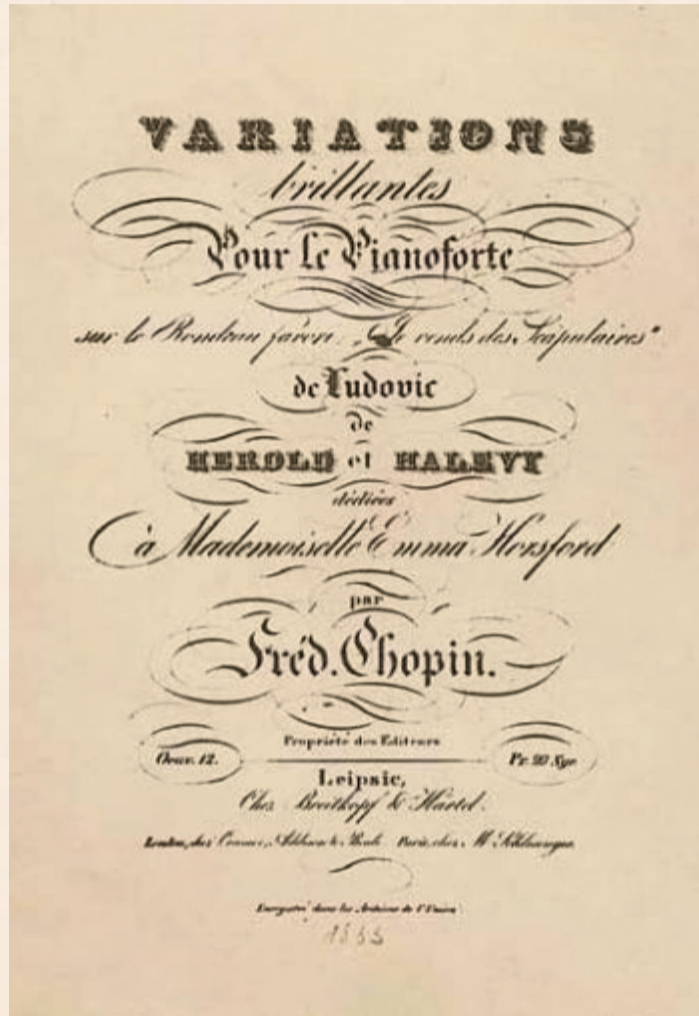 VARIATIONS
brillantes
Pour le Pianoforte
sur le Rondeau favori „Je vends des Scapulaires"
de Ludovic
de
HEROLD et HALEVY
dédiées
à Mademoiselle Emma Horsford
par
Fréd. Chopin.
Propriété des Editeurs
Oeuv. 12.
Pr. 20 Ngr
Leipsic,
Chez Breitkopf & Härtel.
London, chez Cramer, Addison & Beale. Paris, chez M. Schlesinger.
Enregistré dans les Archives de l'Union.
1833